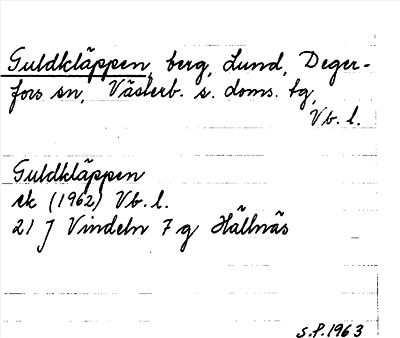 Guldkläppen, berg, Lund, Deger-
fors sn, Västerb. s. doms. tg,
Vb. l.
Guldkläppen
ek (1962) Vb. l.
21 J Vindeln 7 g Hällnäs
S.P. 1963